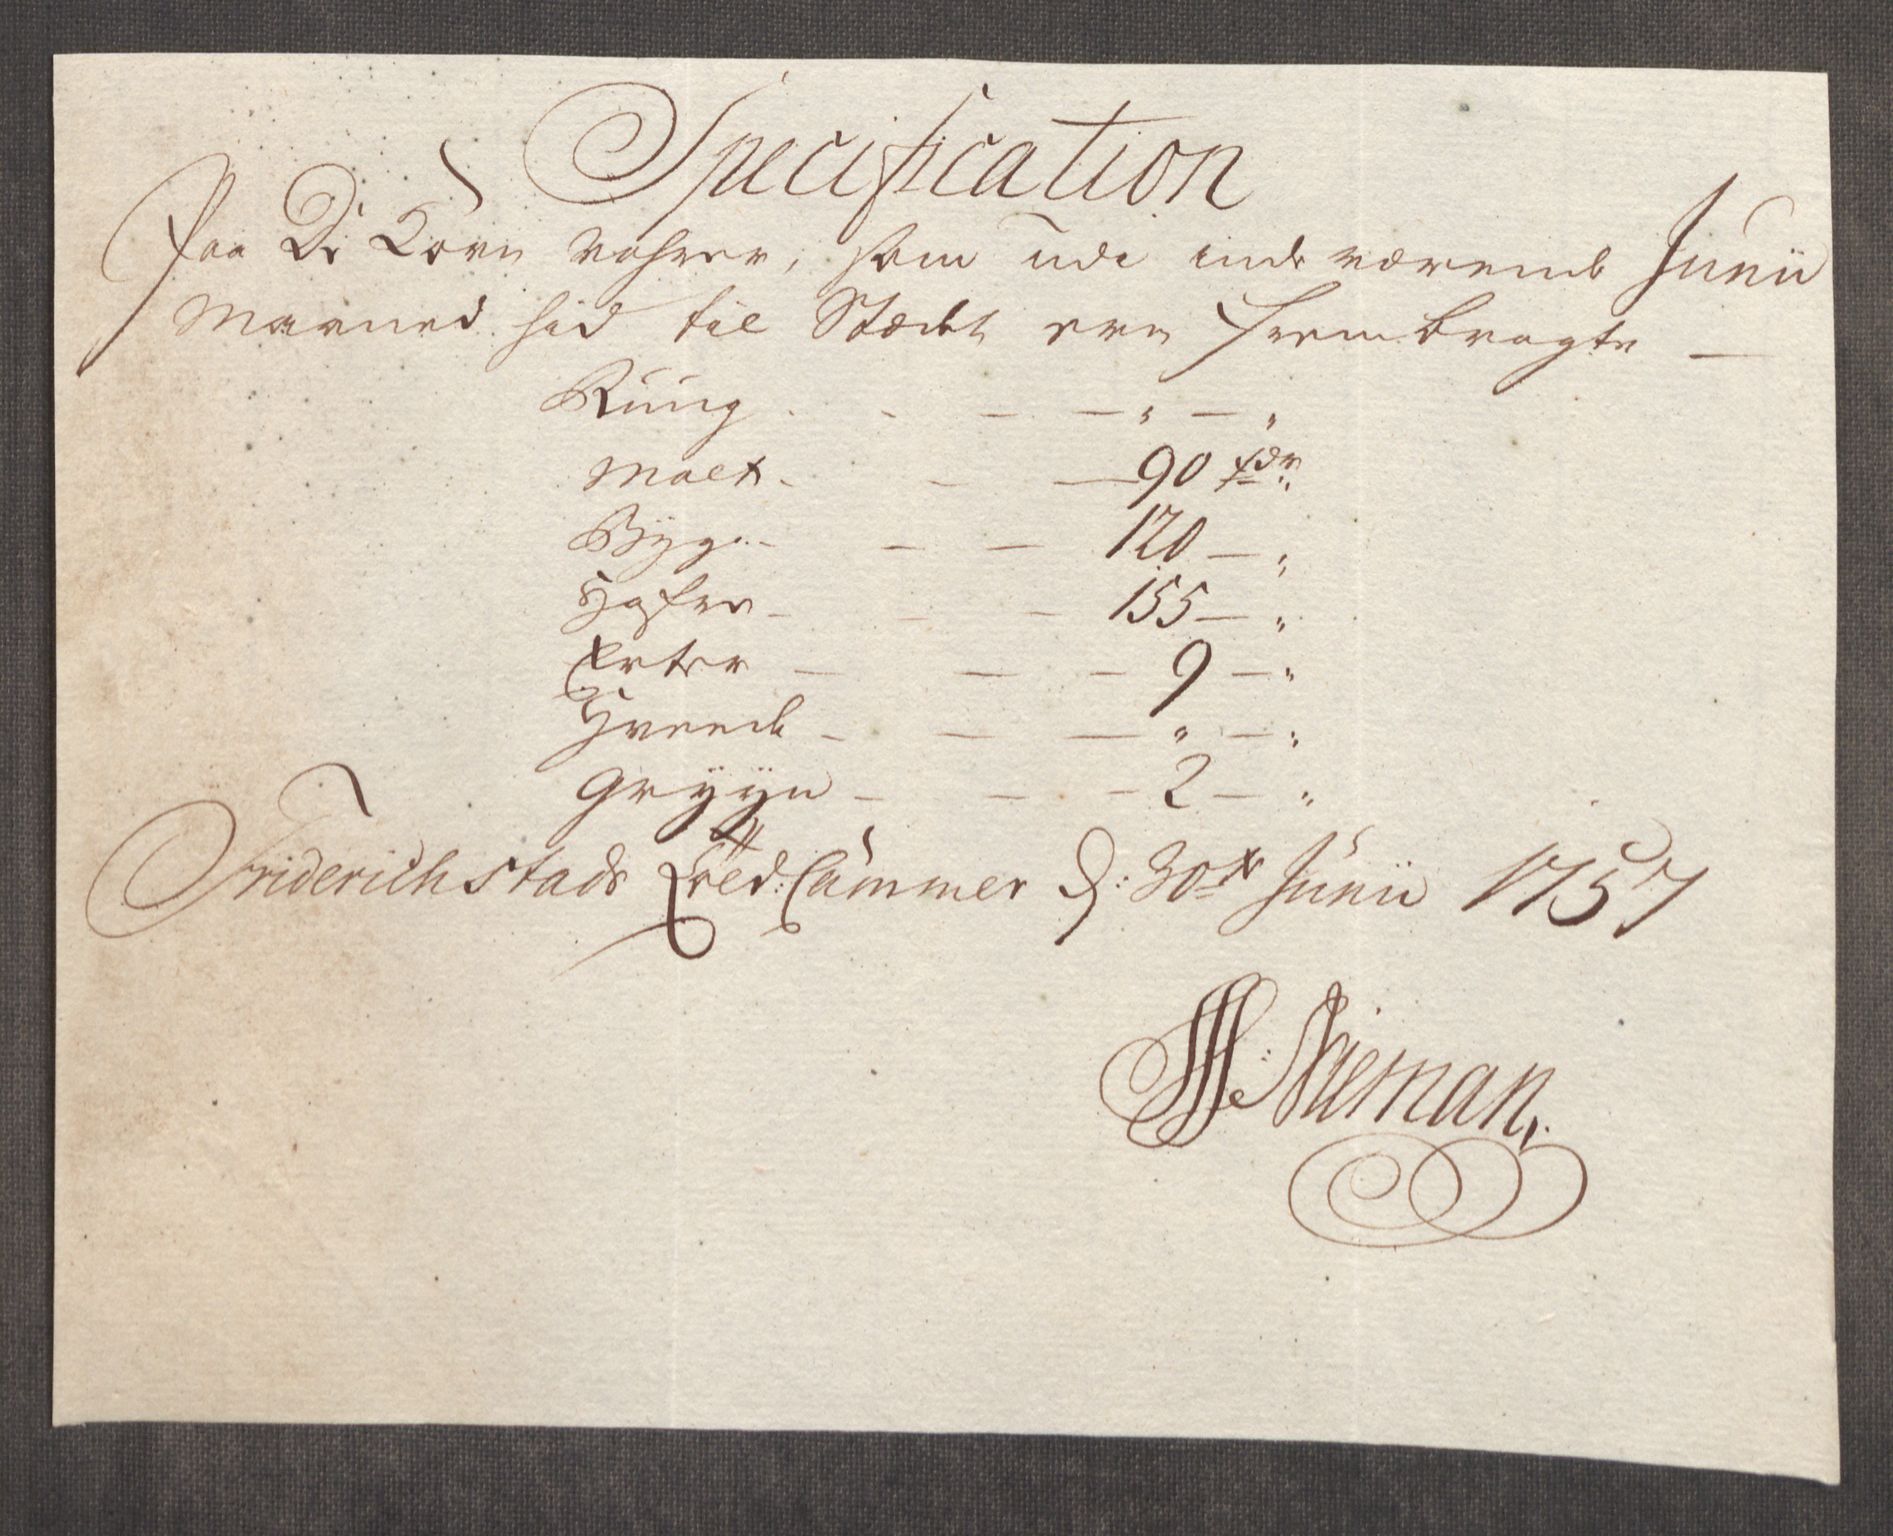 Specification
Paa De Korn Wahrer, som udi inde værende Junii
Maaned hid til Stædet ere frembragte —
Rüug - - — — " — "
Malt - - — 90 tdr
Byg - - — 120 — "
Hafre - - — 155 — "
Erter — — — 9 — "
Hveede - — — " — "
Gryyn - — - 2 — "
Friderichstads Told: Cammer d: 30te Junii 1757
Nieman